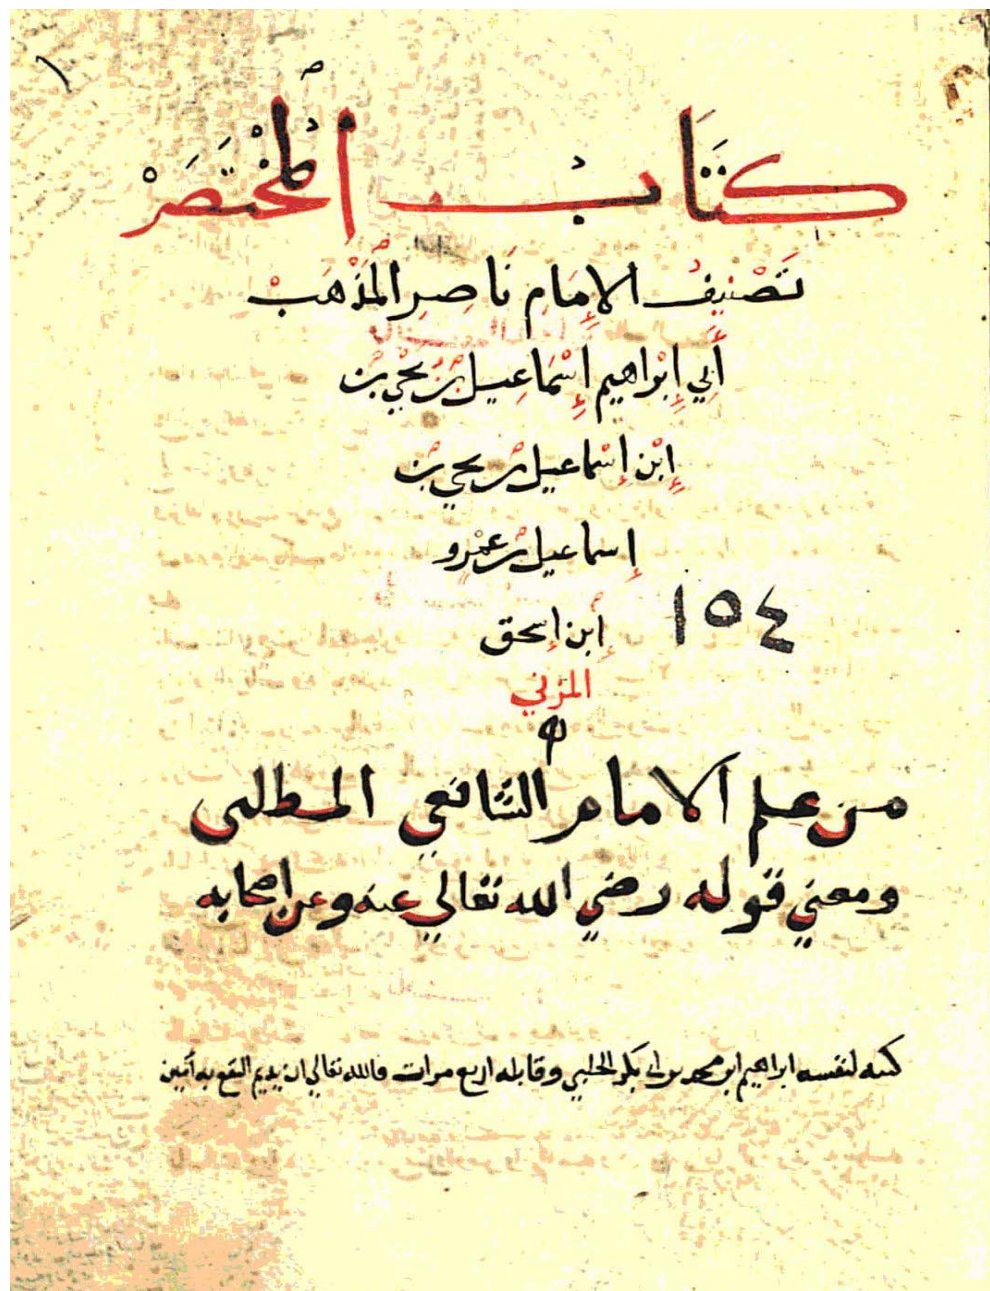 ١
كتَابْ المُخْتَصَرْ
تَصْنِيفُ الإِمَامِ نَاصِرِ المَذْهَبْ
أَبِي إِبْرَاهِيم إِسْمَاعِيل بْنُ يَحْيَ بْنِ
إِبْنِ إِسْمَاعيل بن يحيى بن
إسماعيل بن عمْرِو
إبن إسحق
١٥٤
المزني
من علم الامام الشافعي المطلبى
ومعني قوله رضي الله تعالي عنه وعن اصحابه
كتبه لنفسه ابراهيم ابن محمد بن ابي بكر الحلبي وقابله اربع مرات فالله تعالي ان يديم النفع به آمين